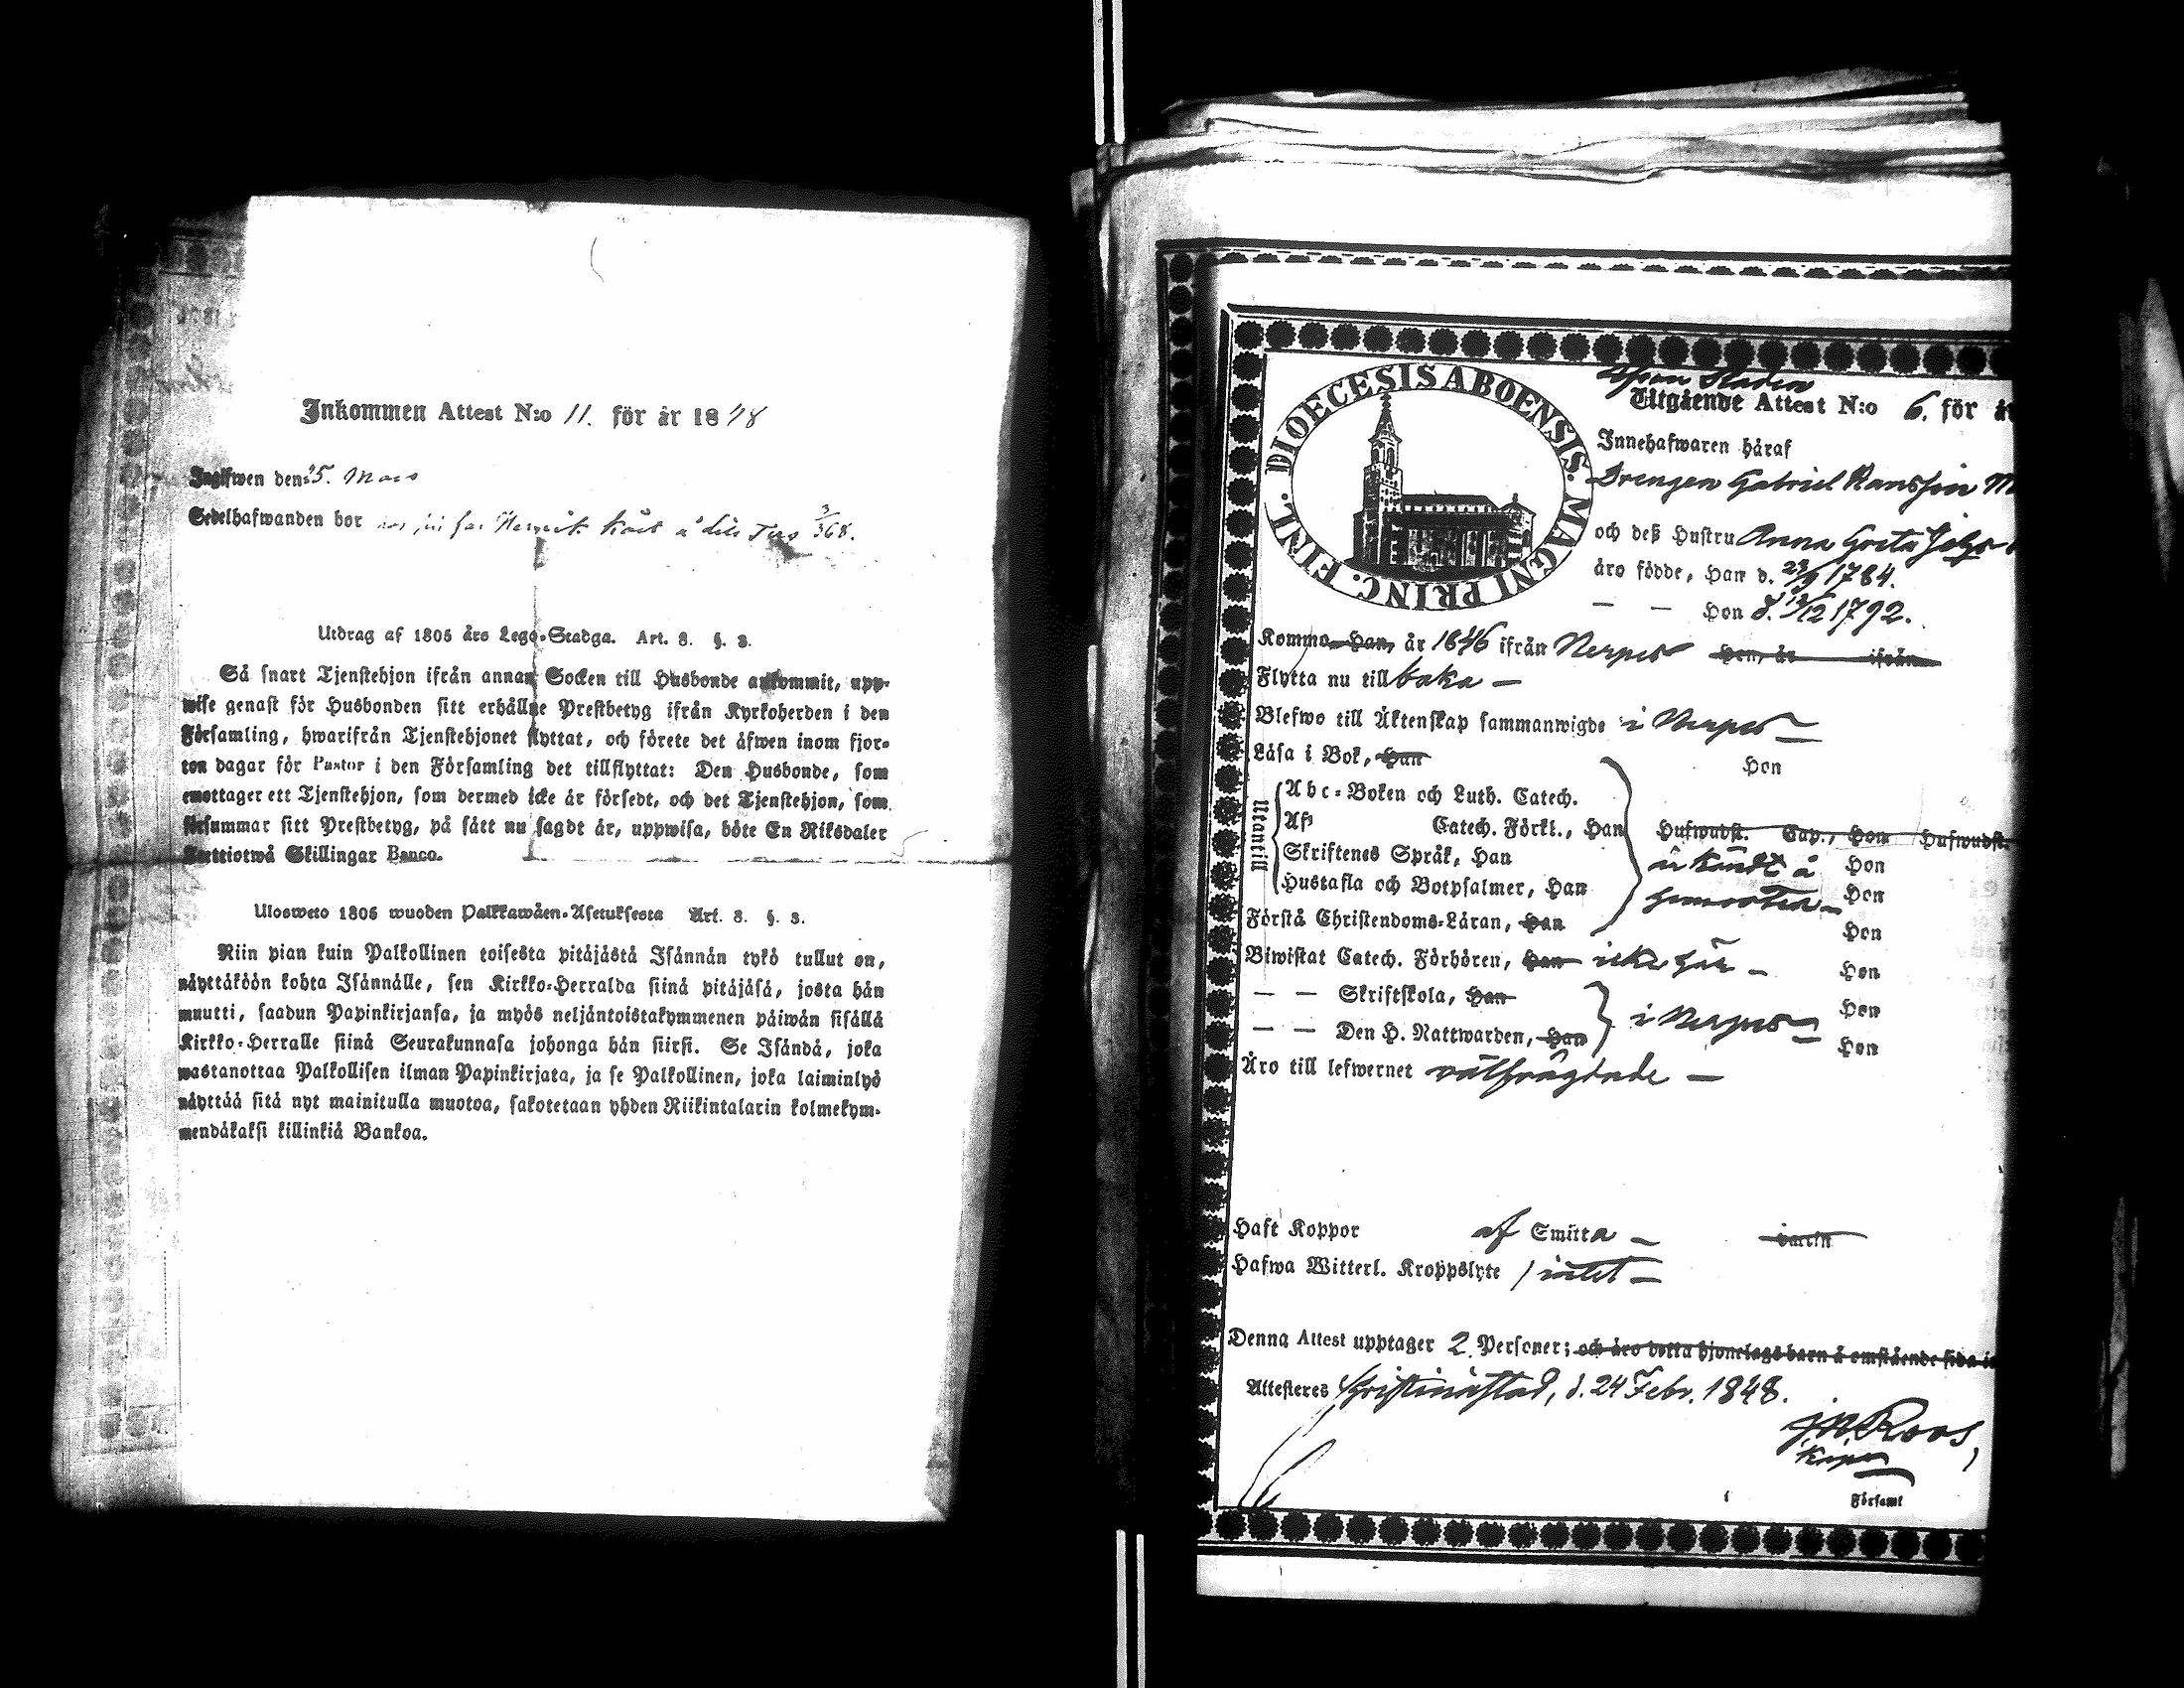 Inkommen Attest N:o 11. för år 1848
Ingifwen den 25. Mars
Sedelhafwanden bor hos å 3/368.
Utdrag af 1805 års Lego-Stadga. Art. 8. §. 3.
Så snart Tjenstehjon ifrån annan Socken till Husbonde ankommit, upp-
wise genast för Husbonden sitt erhållne Prestbetyg ifrån Kyrkoherden i den
Församling, hwarifrån Tjenstehjonet flyttat, och förete det äfwen inom fjor-
ton dagar för Pastor i den Församling det tillflyttat: Den Husbonde, som
emottager ett Tjenstehjon, som dermed icke är försedt, och det Tjenstehjon, som
försummar sitt Prestbetyg, på sätt nu sagdt är, uppwisa, böte En Riksdaler
Trettiotwå Skillingar Banco.
Ulosweto 1805 wuoden Palkkawäen-Asetuksesta Art. 8. §. 3.
Niin pian kuin Palkollinen toisesta pitäjästä Isännän tykö tullut on,
näyttäköön kohta Isännälle, sen Kirkko-Herralda siinä pitäjäsä, josta hän
muutti, saadun Papinkirjansa, ja myös neljäntoistakymmenen päiwän sisällä
Kirkko-Herralle siinä Seurakunnasa johonga hän siirsi. Se Isändä, joka
wastanottaa Palkollisen ilman Papinkirjata, ja se Palkollinen, joka laiminlyö
näyttää sitä nyt mainitulla muotoa, sakotetaan yhden Riikintalarin kolmekym-
mendäkaksi killinkiä Bankoa.
DIOECESIS ABOENSIS. MAGNI PRINC. FINL.
Staden
Utgående Attest N:o 6. för år
Innehafwaren häraf
Drengen Gabriel Hansson
och deß Hustru Anna Greta
äro födde, Han d. 23/9 1784.
— — Hon d. 13/12 1792.
Komma Han, år 1846 ifrån Nerpes Hon, år ifrån
Flytta nu till baka —
Blefwo till Äktenskap sammanwigde i Nerpes —
Läsa i Bok, Han Hon
Utantill
Abc-Boken och Luth. Catech.
Af Catech. Förkl., Han Hufwudst. Cap., Hon Hufwudst.
Skriftenes Språk, Han är kändt å Hon
Hustafla och Botpsalmer, Han hemorten — Hon
Förstå Christendoms-Läran, Han Hon
Biwistat Catech. Förhören, Han icke här — Hon
— — Skriftskola, Han Hon
— — Den H. Nattwarden, Han i Nerpes — Hon
Äro till lefwernet välfrägdade —
Haft Koppor af Smitta —
Hafwa Witterl. Kroppslyte intet —
Denna Attest upptager 2 Personer; och äro detta hjonelags barn å omstående sida
Attesteres Christinæstad, d. 24 Febr. 1848.
Roos,
Församl